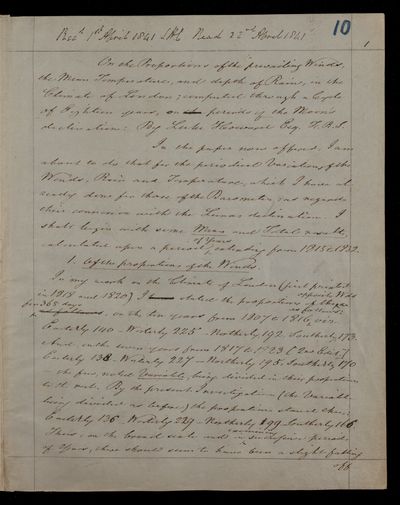 Recd 1st April 1841 Read 22nd April 1841
10
1
On the Proportions of the prevailing Winds,
the Mean Temperature, and depth of Rain, in the
Climate of London; computed through a Cycle
of Eighteen years, or periods of the Moon's
declination: By Luke Howard Esq. F.R.S.
In the paper now offered, I am
about to do that for the periodical Variations of the
Winds, Rain and Temperature, which I have al-
ready done for those of the Barometer; as regards
their connexion with the Lunar declination. I
shall begin with some Mean and Total results,
calculated upon a period of Years extending from 1815 to 1832.
1. Of the proportions of the Winds.
In my work on the Climate of London (first printed
in 1818 and 1820) I stated the proportions of the opposite Winds
for 365 days as follows: in the ten years from 1807 to 1816, viz.
Easterly 140 - Westerly 225 - Northerly 192, Southerly 173.
And, in the seven years from 1817 to 1823 (2nd Edit.)
Easterly 138 - Westerly 227 - Northerly 195 - Southerly 170
the few, noted Variable, being divided in these proportions
to the rest. By the present Investigation (the Variable
being divided as before) the proportions stand thus:
Easterly 136 - Westerly 229 - Northerly 199 Southerly 166
Thus, on the broad scale and in successive periods
of Years, there should seem to have been a slight falling
off